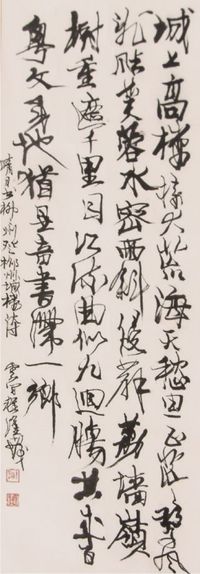 城上高樓接大荒海天愁思正茫々驚風
亂飐芙蓉水密雨斜侵薜荔墻嶺
樹重遮千里目江流曲似九迴腸共來百
粤文身地猶自音書滯一鄉
柳州登柳州城樓詩